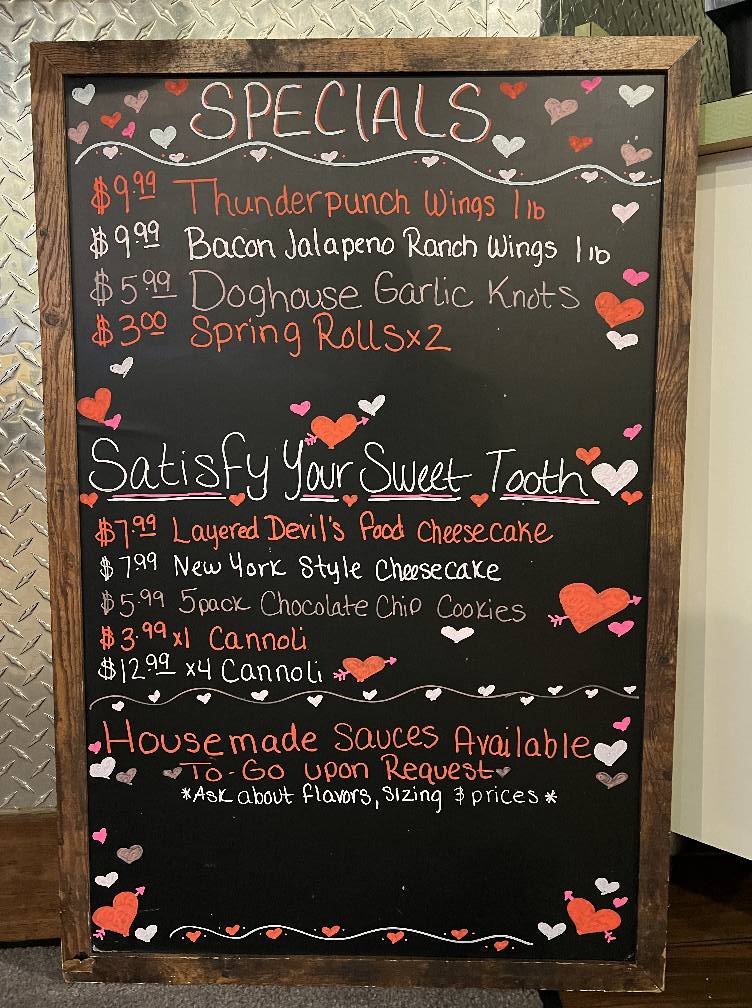 SPECIALS
$9.99 Thunderpunch Wings 1 lb
$9.99 Bacon Jalapeno Ranch Wings 1 lb
$5.99 Doghouse Garlic Knots
$3.00 Spring Rolls x2
Satisfy Your Sweet Tooth
$7.99 Layered Devil's Food Cheesecake
$7.99 New York Style Cheesecake
$5.99 5pack Chocolate Chip Cookies
$3.99 x1 Cannoli
$12.99 x4 Cannoli
Housemade Sauces Available
To-Go upon Request
*Ask about flavors, sizing & prices*